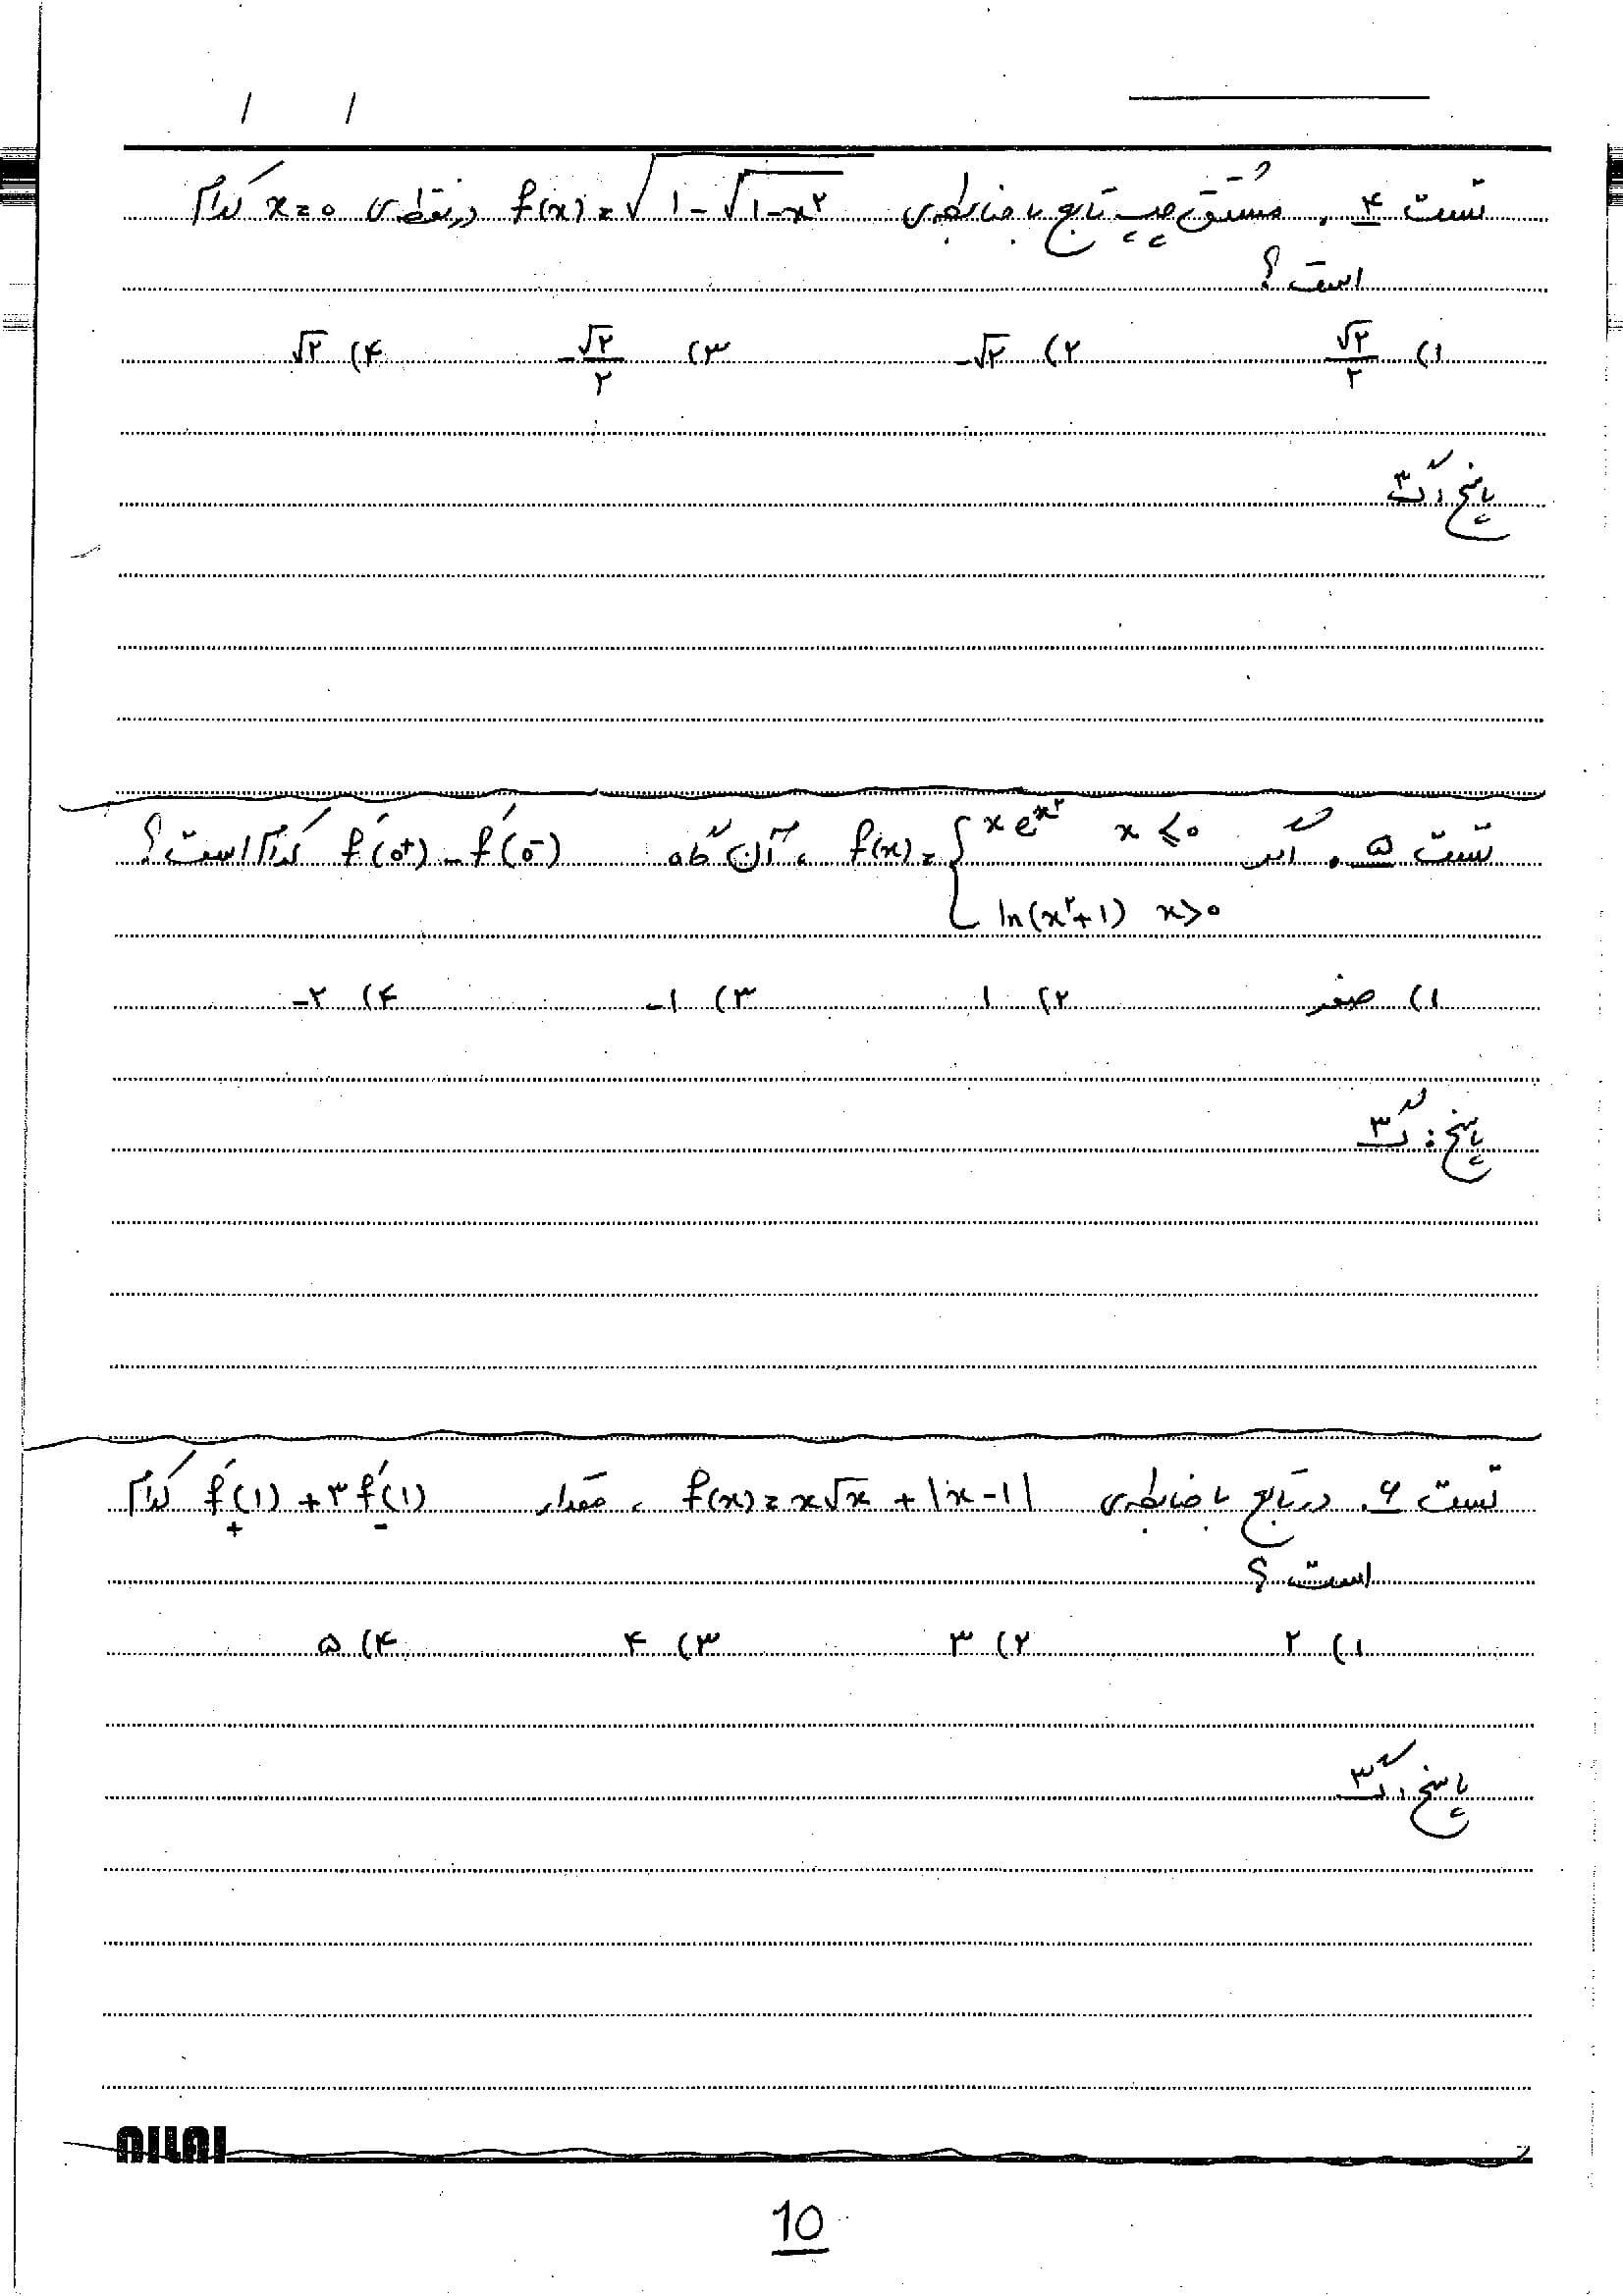 / /
تست ۴. مشتق چپ تابع با ضابطه‌ی f(x)=√(1-√(1-x²)) در نقطه‌ی x=0 کدام
است؟
۱) √۲/۲ ۲) -√۲ ۳) -√۲/۲ ۴) √۲
پاسخ: گ ۳
تست ۵. اگر f(x)={ x e^{x²} x≤0 ، آن گاه f'(0⁺)-f'(0⁻) کدام است؟
ln(x²+1) x>0
۱) صفر ۲) ۱ ۳) -۱ ۴) -۲
پاسخ: گ ۳
تست ۶. در تابع با ضابطه‌ی f(x)=x√x+|x-1| ، مقدار f'₊(1)+۳f'₋(1) کدام
است؟
۱) ۲ ۲) ۳ ۳) ۴ ۴) ۵
پاسخ: گ ۳
10